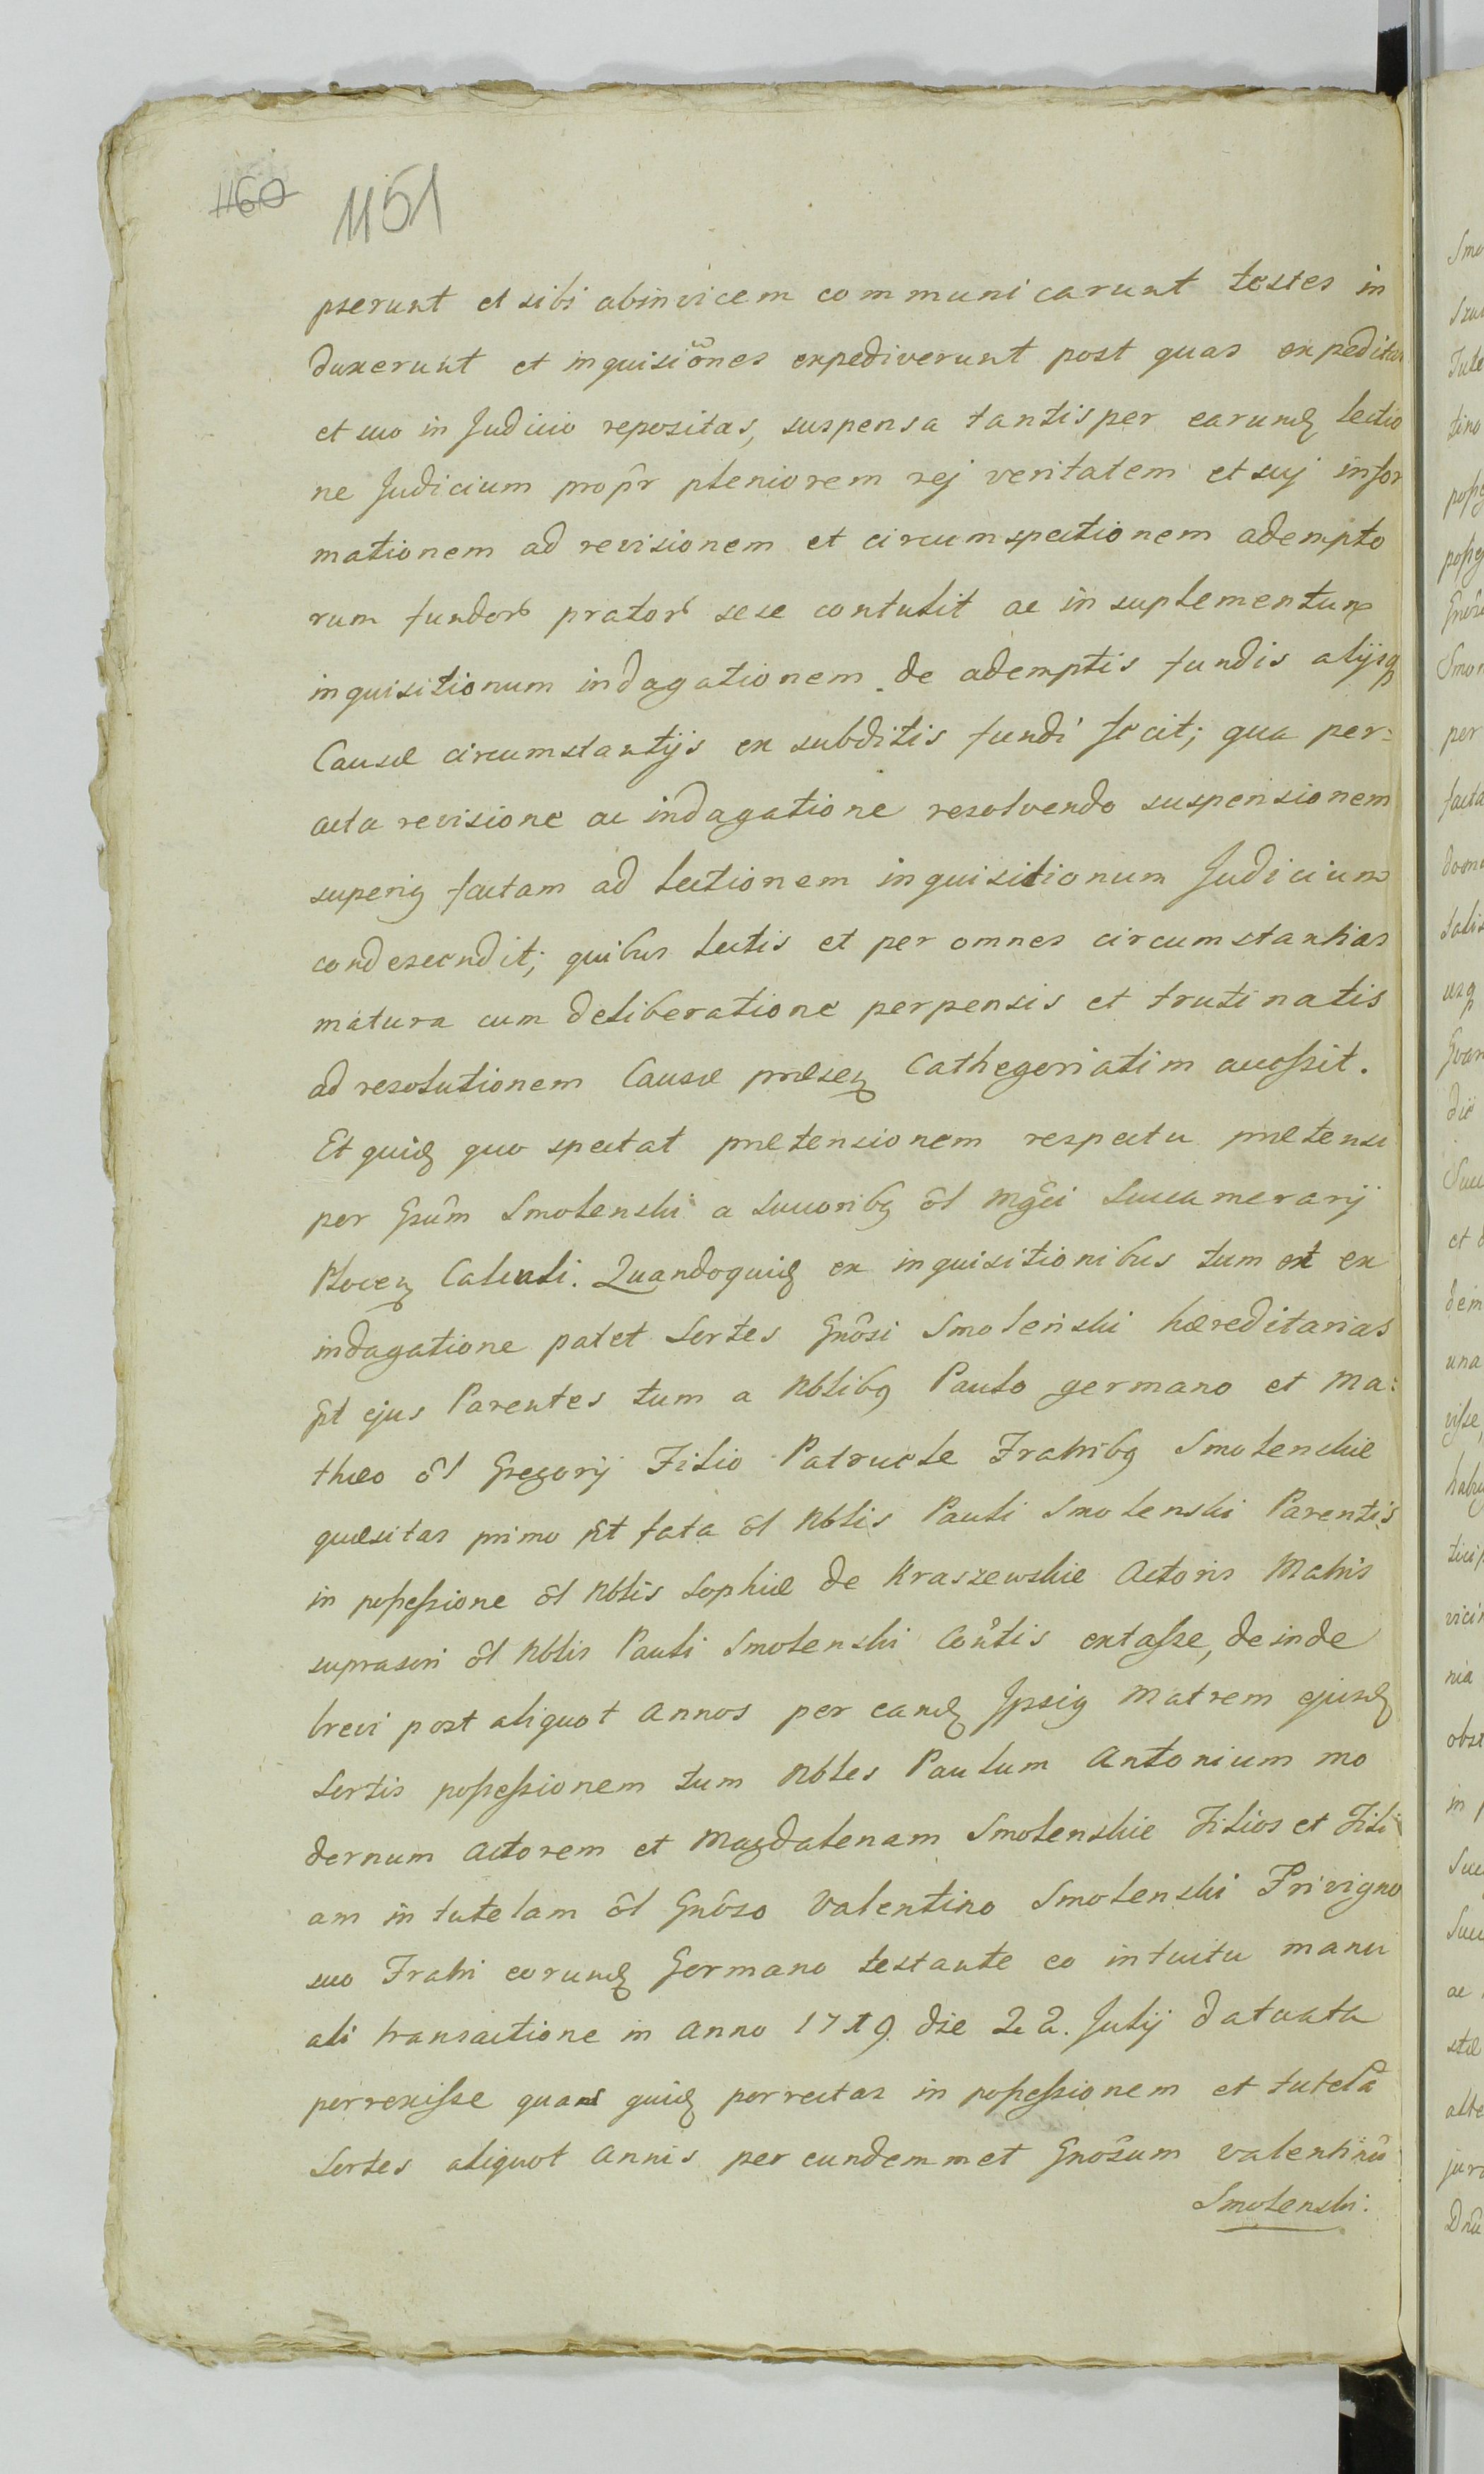 1160 1151
pserunt et sibi abinvicem communicarunt testes in
duxerunt et inquisiõnes expediverunt post quas expeditas
et suo in Judicio repositas, suspensa tantisper earundꝫ lectio
ne Judicium propr̃ pleniorem rej veritatem et suj infor
mationem ad revisionem et circumspectionem adempto
rum fundorꝫ pratorꝫ sese contulit ac in suplementum
inquisitionum indagationem de ademptis fundis alijsq
Causæ circumstantijs ex subditis fundi fecit; qua per:
acta revisione ac indagatione resolvendo suspensionem
superiꝫ factam ad lectionem inquisitionum Judicium
condescendit; quibus lectis et per omnes circumstantias
matura cum deliberatione perpensis et trutinatis
ad resolutionem Causæ præseꝫ Cathegoriatim accessit.
Et quidꝫ quo spectat prætensionem respectu prætensi
per Gsũm Smolenski a Succoribꝫ õl Mgc̃i Succamerarij
Plocenꝫ Calculi. Quandoquidꝫ ex inquisitionibus tum et ex
indagatione patet Sortes Gnõsi Smolenski hæreditarias
pt̃ ejus Parentes tum a Nblibꝫ Paulo germano et Ma:
thæo õl Gregorij Filio Patruele Fratribꝫ Smolenskie
quæsitas primo pt̃ fata õl Nblis Pauli Smolenski Parentis
in possessione õl Nblis Sophiæ de Kraszewskie Actoris Matris
suprascri õl Nblis Pauli Smolenski Cons̃tis extasse, deinde
brevi post aliquot Annos per eandꝫ Ipsiꝫ Matrem ejusdꝫ
Sortis possessionem tum Nbles Paulum Antonium mo
dernum Actorem et Magdalenam Smolenskie Filios et Fili
am in tutelam õl Gnõso Valentino Smolenski Privigno
suo Fratri eorundꝫ Germano testante eo intuitu manu
ali transactione in Anno 1719 die 22. Julij datuata
porrexisse quas quidꝫ porrectas in possessionem et tutelã
Sortes aliquot Annis per eundemmet Gnõsum Valentinũ
Smolenski: